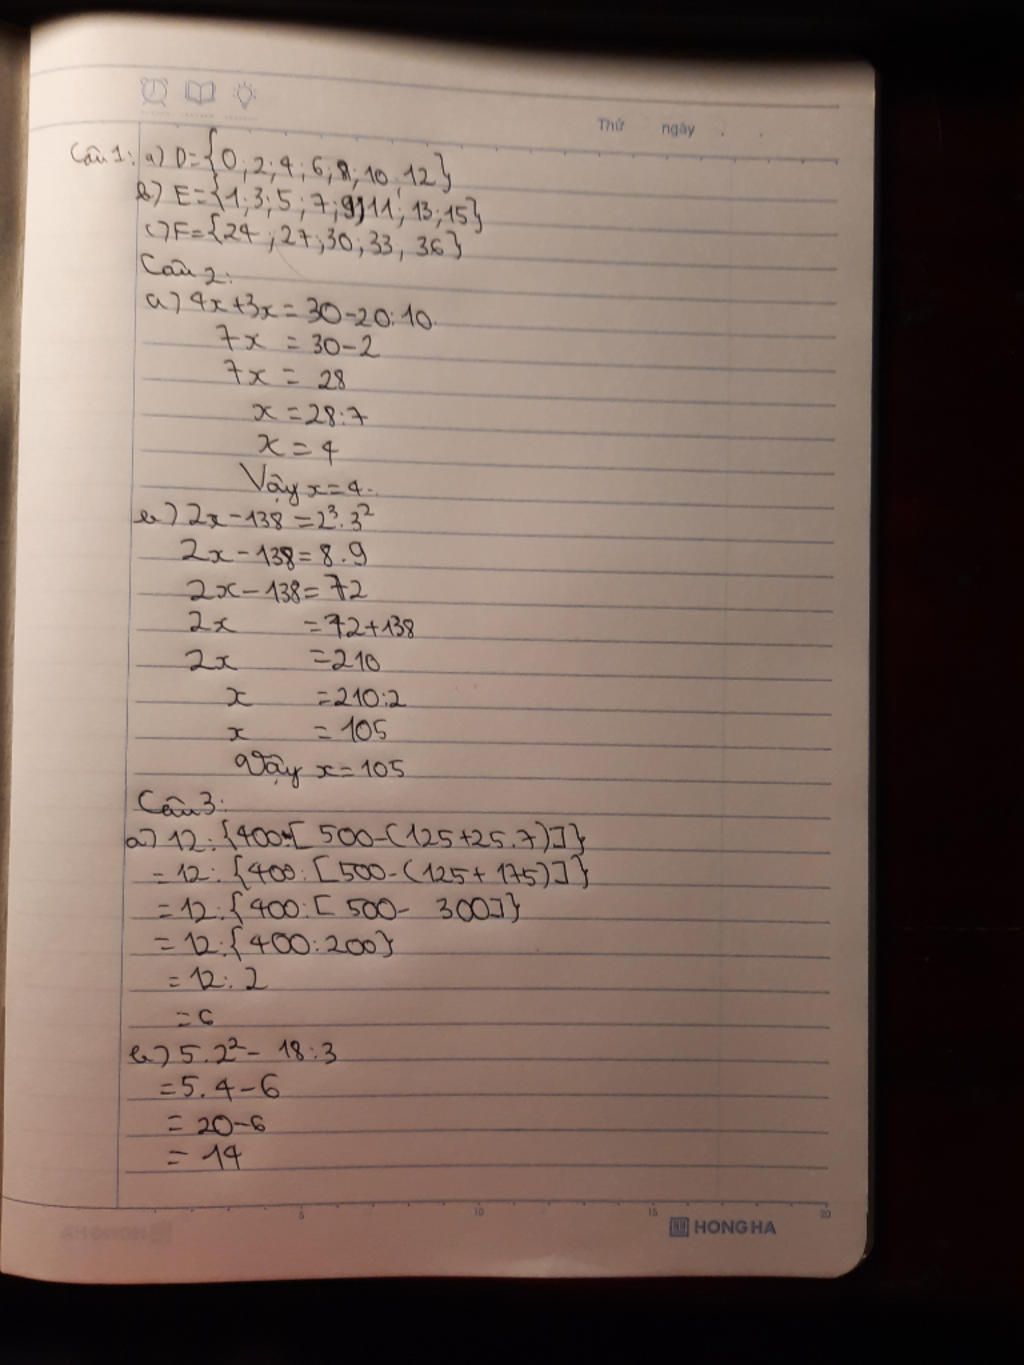 Thứ ngày . .
Câu 1: a) D={0;2;4;6;8;10;12}
b) E={1;3;5;7;9;11;13;15}
c) F={24;27;30;33;36}
Câu 2:
a) 4x+3x=30-20:10.
7x = 30-2
7x = 28
x = 28:7
x = 4
Vậy x=4.
b) 2x-138=2³.3²
2x-138=8.9
2x-138=72
2x =72+138
2x =210
x =210:2
x = 105
Vậy x=105
Câu 3:
a) 12:{400:[500-(125+25.7)]}
=12:{400:[500-(125+175)]}
=12:{400:[500- 300]}
=12:{400:200}
=12:2
=6
b) 5.2²- 18:3
=5.4-6
= 20-6
= 14
5 10 15 20
HONG HA